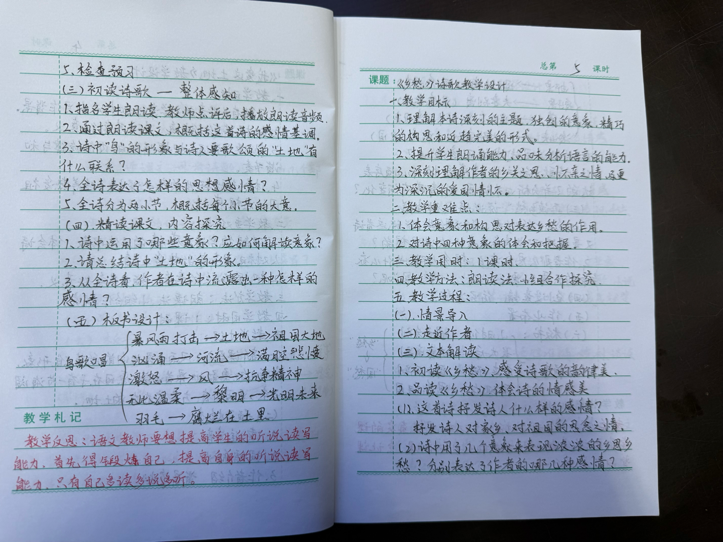 5.检查预习
(三)初读诗歌 — 整体感知
1.指名学生朗读 教师点评后,播放朗读音频
2.通过朗读课文,概括这首诗的感情基调
3.诗中"鸟"的形象与诗人要歌颂的"土地"有
什么联系?
4.全诗表达了怎样的思想感情?
5.全诗分为两小节,概括每个小节的大意.
(四).精读课文,内容探究
1、诗中运用了哪些意象?应如何解读意象?
2.请总结诗中"土地"的形象.
3.从全诗看,作者在诗中流露出一种怎样的
感情?
(五)板书设计:
暴风雨打击→土地→祖国大地
鸟歌唱 汹涌→河流→满腔悲愤
激怒→风→抗争精神
无比温柔→黎明→光明未来
羽毛→腐烂在土里
教学札记
教学反思:语文教师要想提高学生的听说读写
能力,首先得锻炼自己,提高自身的听说读写
能力,只有自己
总第 5 课时
课题:《乡愁》诗歌教学设计
一.教学目标
1.理解本诗深刻的主题,独创的意象,精巧
的构思和近趋完美的形式.
2.提升学生朗诵能力,品味赏析语言的能力.
3.深刻理解作者的乡关之思,
为深沉的爱国情怀.
二.教学重难点:
1.体会意象和构思对表达乡愁的作用.
2.对诗中四种意象的体会和把握.
三.教学用时:1课时.
四.教学方法:朗读法 小组合作探究
五.教学过程:
(一).情景导入
(二).走近作者
(三).文本解读
1.初读《乡愁》,感受诗歌的韵律美.
2.品读《乡愁》,体会诗的情感美
(1).这首诗抒发诗人什么样的感情?
抒发诗人对家乡,对祖国的思念之情.
(2)诗中用了几个意象来表现浓浓的乡思乡
愁?分别表达了作者的哪几种感情?